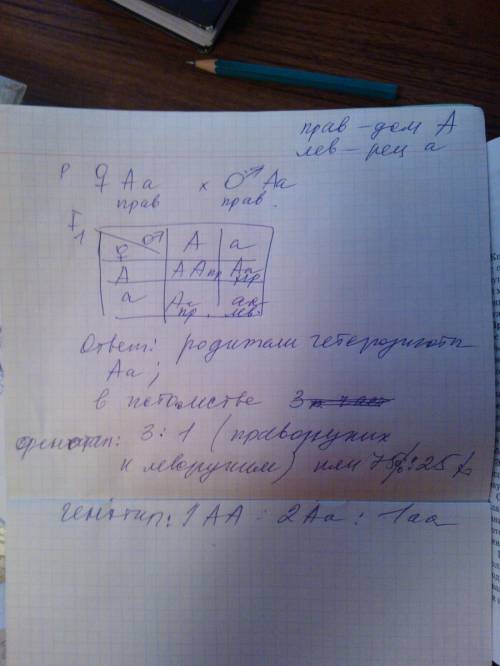 прав – дом А
лев – рец а
Р ♀ Аа х ♂ Аа
прав прав.
F1
♀ ♂ А а
А АА пр Аа пр
а Аа пр. аа лев.
Ответ: родители гетерозиготы
Аа;
в потомстве 3
фенотип: 3:1 (праворуких
к леворуким) или 75%:25%
генотип: 1АА : 2Аа : 1аа